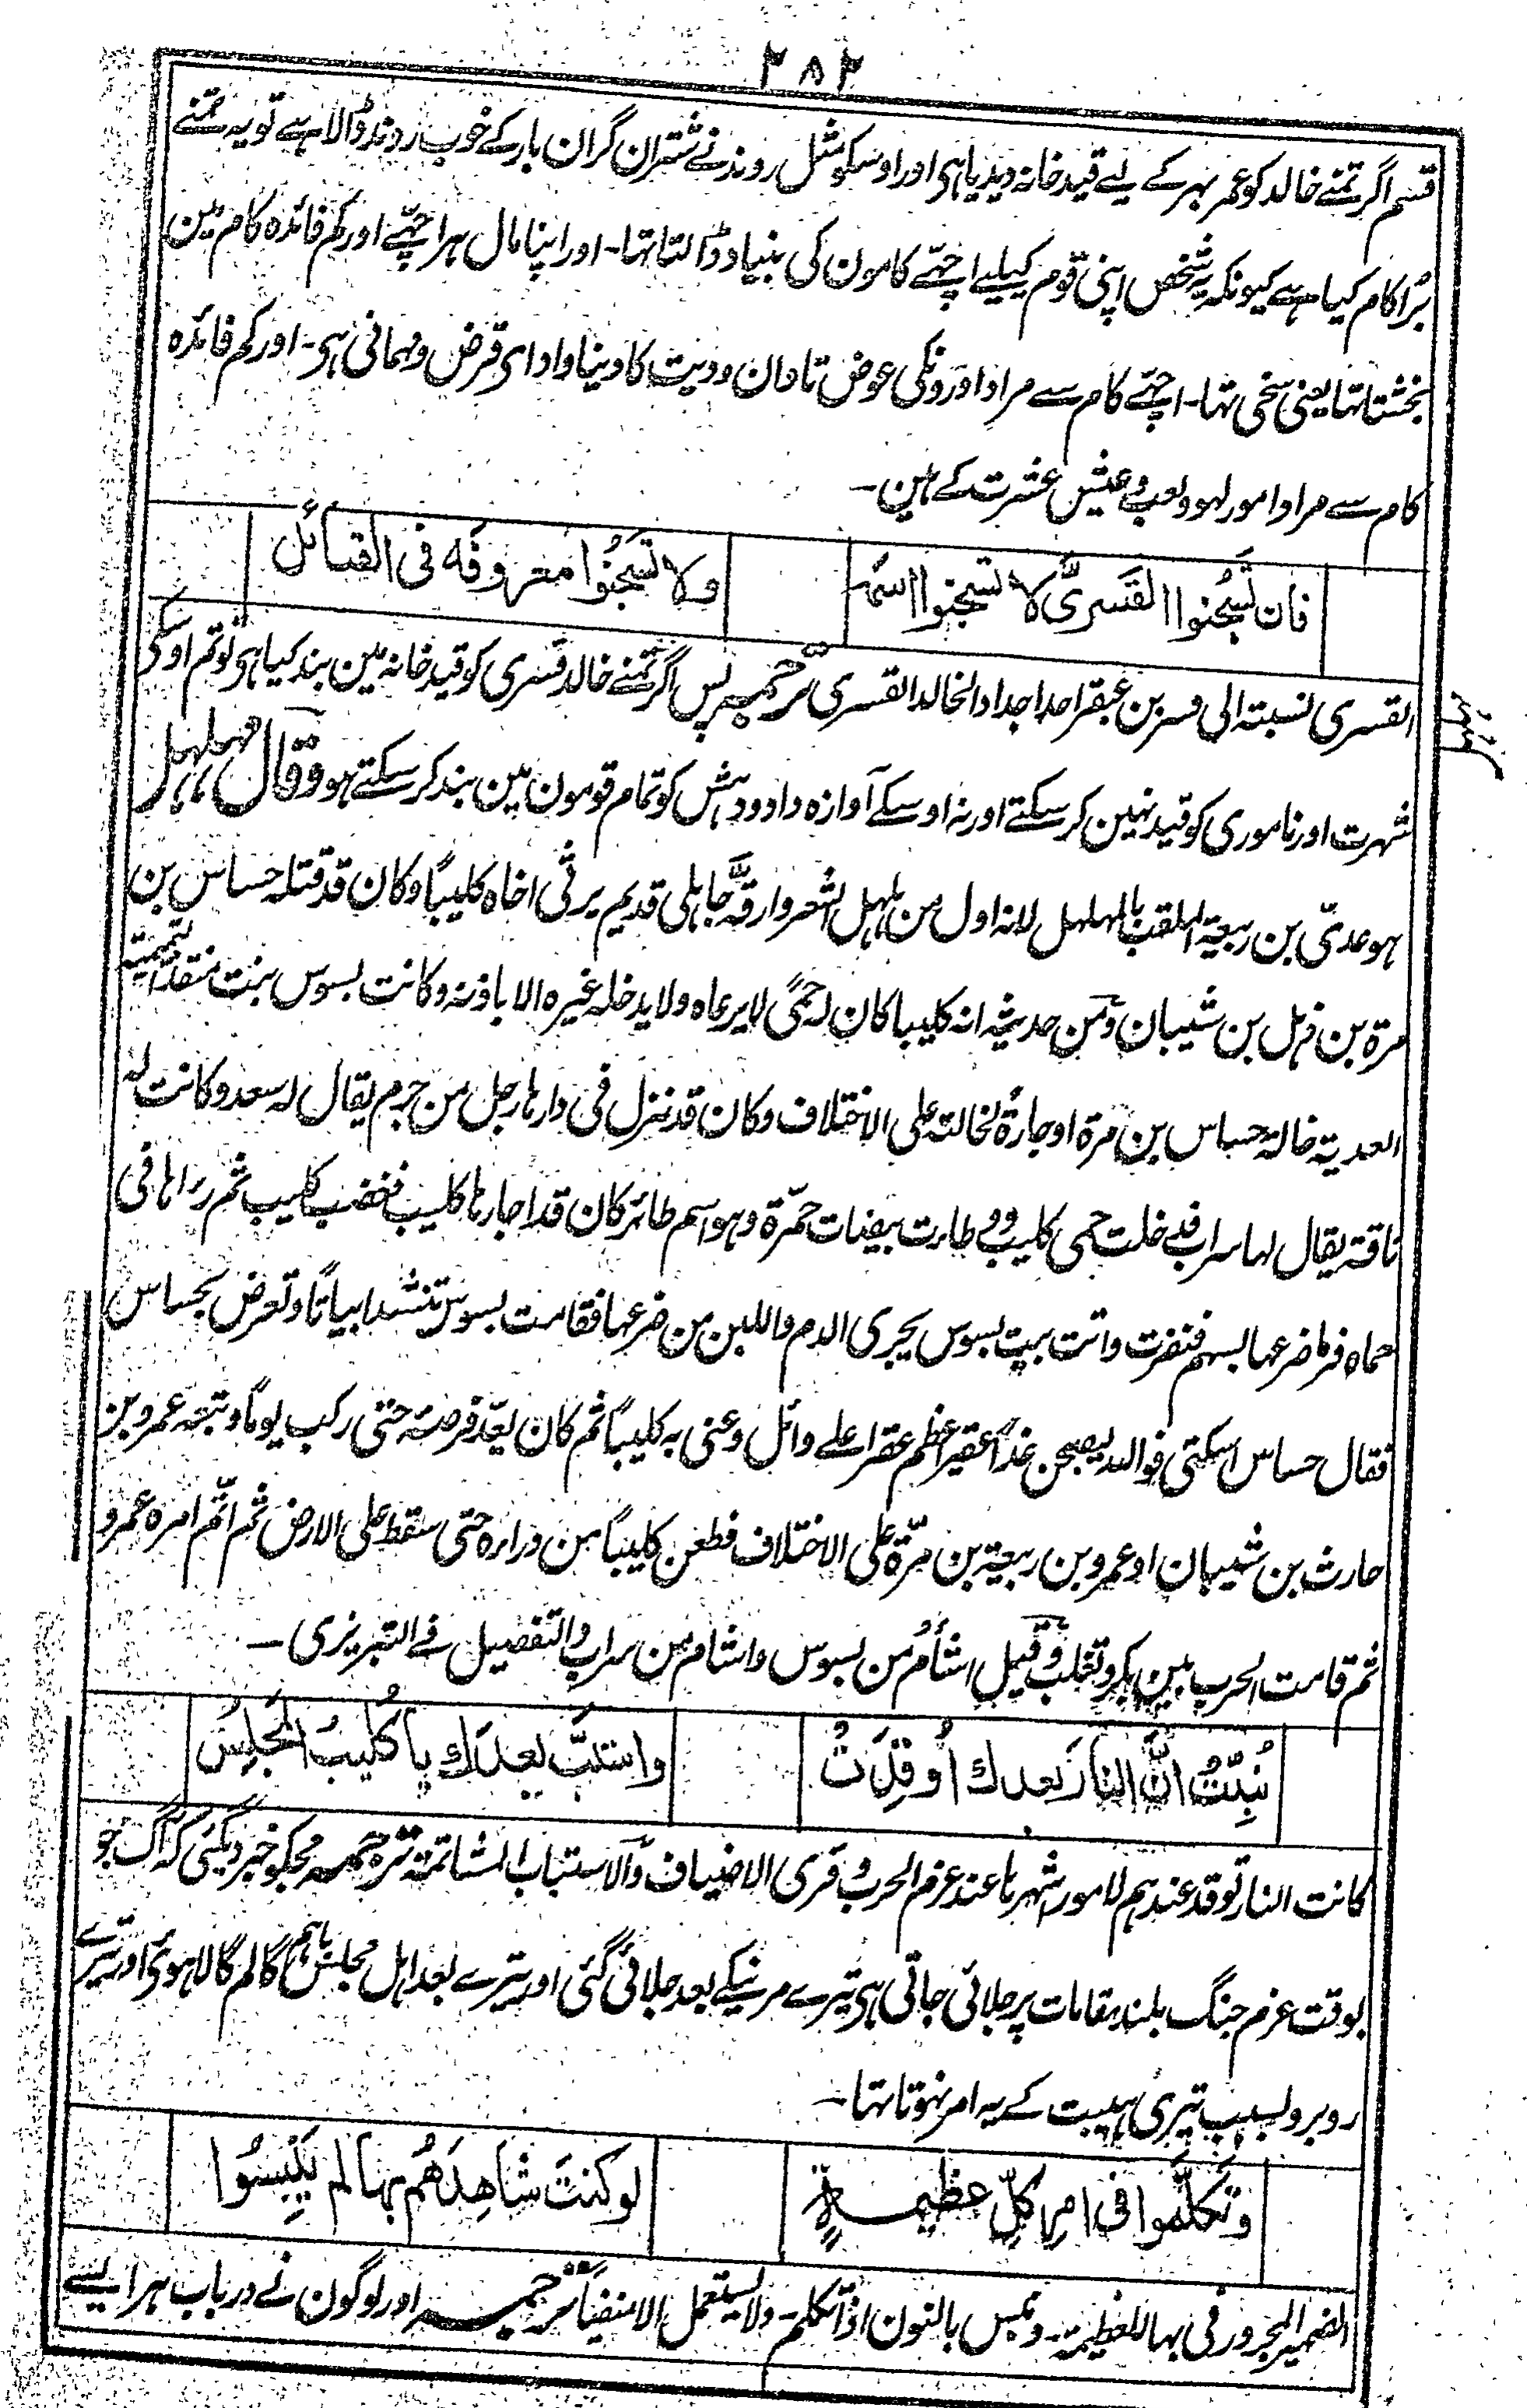 ۲۸۲
قسم اگر تمنے خالد کو عمر بہر کے لیے قید خانہ دیدیا ہی اور اوسکو مثل روندنے شتران گران بار کے خوب روند ڈالا ہے تو یہ تمنے
بُرا کام کیا ہے کیونکہ یہ شخص اپنی قوم کیلیے اچہے کامون کی بنیاد ڈالتا تہا۔ اور اپنا مال ہر اچہے اور کم فائدہ کام مین
بخشتا تہا یعنی سخی تہا۔ اچہے کام سے مراد اورونکی عوض تاوان ودیت کا دینا وادای قرض ومہمانی ہی۔ اور کم فائدہ
کام سے مراد امور لہو ولعب وعیش عشرت کے ہین۔
فان تَسْجُنوا القَسرىَّ لا تسجنوا اسمَہ
ولا تَسْجُنُوا معروفَه فى القبائل
القسری نسبتہ الی قسر بن عبقر احد اجداد الخالد القسری ترجمہ پس اگر تمنے خالد قسری کو قید خانہ مین بند کیا ہی تو تم اوسکی
شہرت اور ناموری کو قید نہین کر سکتے اور نہ اوسکے آوازہ داد ودہش کو تمام قومون مین بند کر سکتے ہو وقال مہلہل
ہو عدیّ بن ربیعۃ الملقب بالمہلہل لانہ اول من ہلہل الشعر وارقّہ جاہلی قدیم یرثی اخاہ کلیبًا وکان قد قتلہ جساس بن
مرۃ بن ذہل بن شیبان ومن حدیثہ انہ کلیبا کان لہ حمًی لا یرعاہ ولا یدخلہ غیرہ الا باذنہ وکانت بسوس بنت منقذ التمیمیۃ
العدیۃ خالۃ جساس بن مرۃ او جارۃ لخالتہ علی الاختلاف وکان قد نزل فی دارہا رجل من جرم یقال لہ سعد وکانت لہ
ناقۃ یقال لہا سراب فدخلت حمی کلیب ووطات بیضات حمّرۃ وہو اسم طائر کان قد اجارہا کلیب فغضب کلیب ثم رراہا فی
حماہ فرما ضرعہا بسہم فنفرت واتت بیت بسوس یجری الدم واللبن من ضرعہا فقامت بسوس تنشد ابیاتًا وتعرض بجساس
فقال جساس اسکتی فواللہ لیصبحن غدًا عقیرا عظم عقرا علے وائل وعنی بہ کلیبًا ثم کان یعدّ فرصۃ حتی رکب یومًا وتبعہ عمرو بن
حارث بن شیبان او عمرو بن ربیعۃ بن مرّۃ علی الاختلاف فطعن کلیبًا من وراءہ حتی سقط علی الارض ثم اتّم امرہ عمرو
ثم قامت الحرب بین بکر وتغلب وقیل اشأمُ من بسوس واشام من سراب والتفصیل فے التبریزی ۔
نُبِّئْتُ انَّ النار بعدك اُوقِدَتْ
واستَبَّ بعدك يا كُليبُ المجلِسُ
کانت النار توقد عندہم لامور اشہرہا عند عزم الحرب وقری الاضیاف والاستباب المشاتمۃ ترجمہ مجکو خبر دیگئی کہ آگ جو
بوقت عزم جنگ بلند مقامات پر جلائی جاتی ہی تیرے مرنیکے بعد جلائی گئی اور تیرے بعد اہل مجلس باہم گالم گالا ہوئی اور تیرے
روبرو بسبب تیری ہیبت کے یہ امر نہوتا تہا۔
وتَكلَّموا فى امر كلّ عظيمةٍ
لو كنتَ شاهِدَهُم بها لم يَنْبِسُوا
الضمیر المجرور فی بہا للعظیمۃ۔ ونبس بالنون اذا تکلم۔ ولا یستعمل الا منفیًا ترجمہ اور لوگون نے در باب ہر ایسے